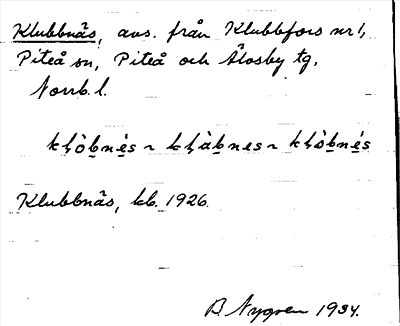 Klubbnäs, avs. från Klubbfors nr 1,
Piteå sn, Piteå och Älvsby tg,
Norrb. l.
kḷòb̲nés ~ kḷàb̲nes ~ kḷòb̲nés
Klubbnäs, kb. 1926.
B. Nygren 1934.